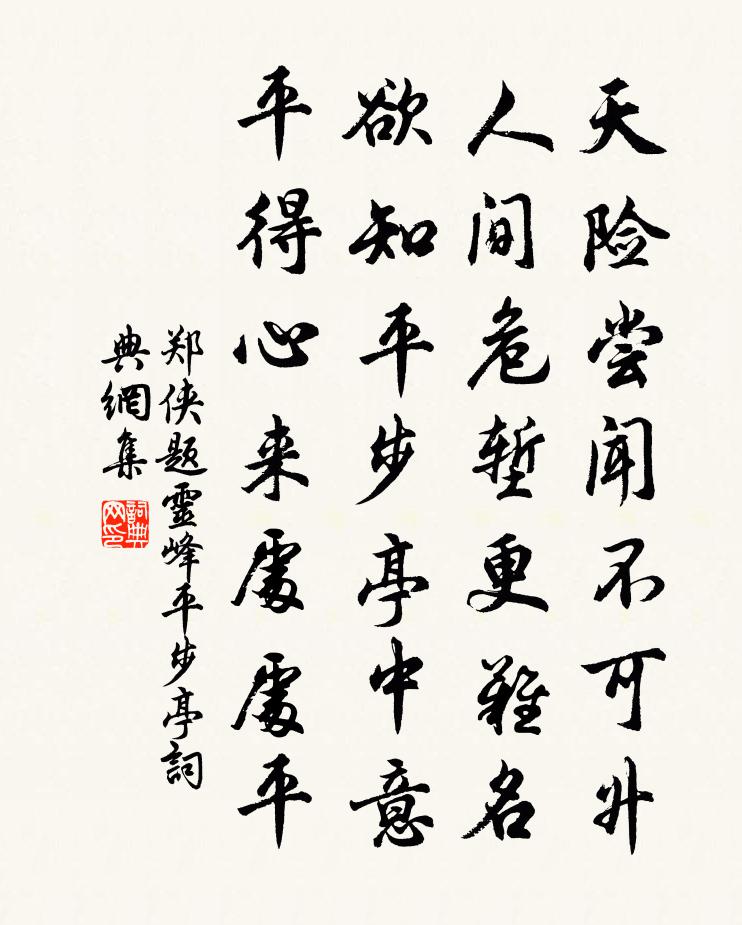 天险尝闻不可升
人间危堑更难名
欲知平步亭中意
平得心来处处平
郑侠题靈峰平步亭詞
典網集
詞典
网印